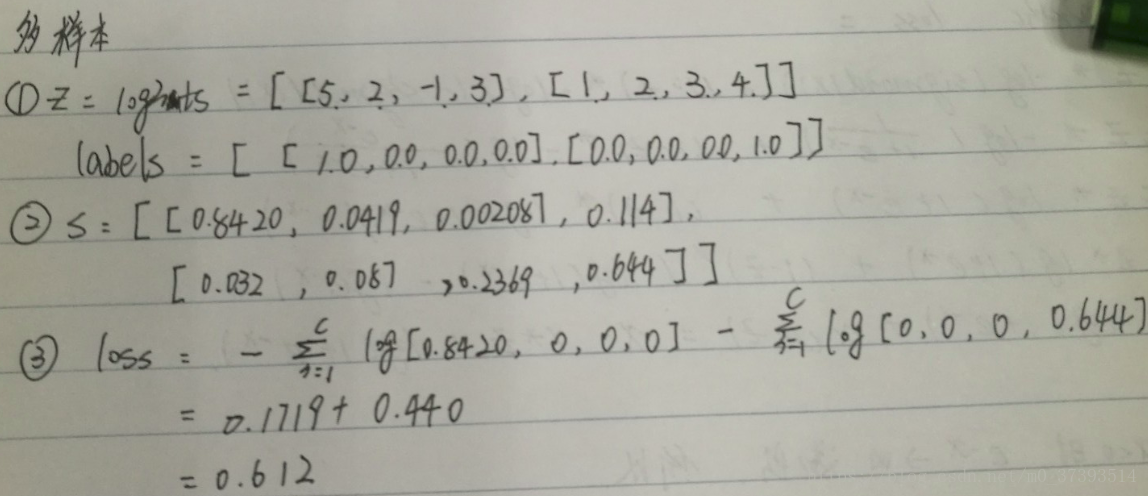 多样本
① z = logits = [ [5, 2, -1, 3], [1, 2, 3, 4] ]
labels = [ [ 1.0, 0.0, 0.0, 0.0], [0.0, 0.0, 0.0, 1.0 ] ]
② s = [ [ 0.8420, 0.0419, 0.002087, 0.114],
[ 0.032 , 0.087 , 0.2369 , 0.644 ] ]
③ loss = - ∑_{i=1}^{C} log [0.8420, 0, 0, 0] - ∑_{i=1}^{C} log [0, 0, 0, 0.644]
= 0.1719 + 0.440
= 0.612